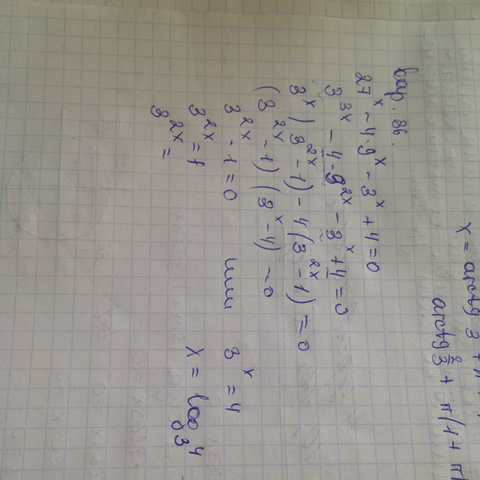 x = arctg
arctg 2/3 + π/4 + π
Вар. 36.
27^x - 4·9^x - 3^x + 4 = 0
3^3x - 4·3^2x - 3^x + 4 = 0
3^x (3^2x - 1) - 4(3^2x - 1) = 0
(3^2x - 1)(3^x - 4) = 0
3^2x - 1 = 0 или 3^x = 4
3^2x = 1 x = log_3 4
3^2x =